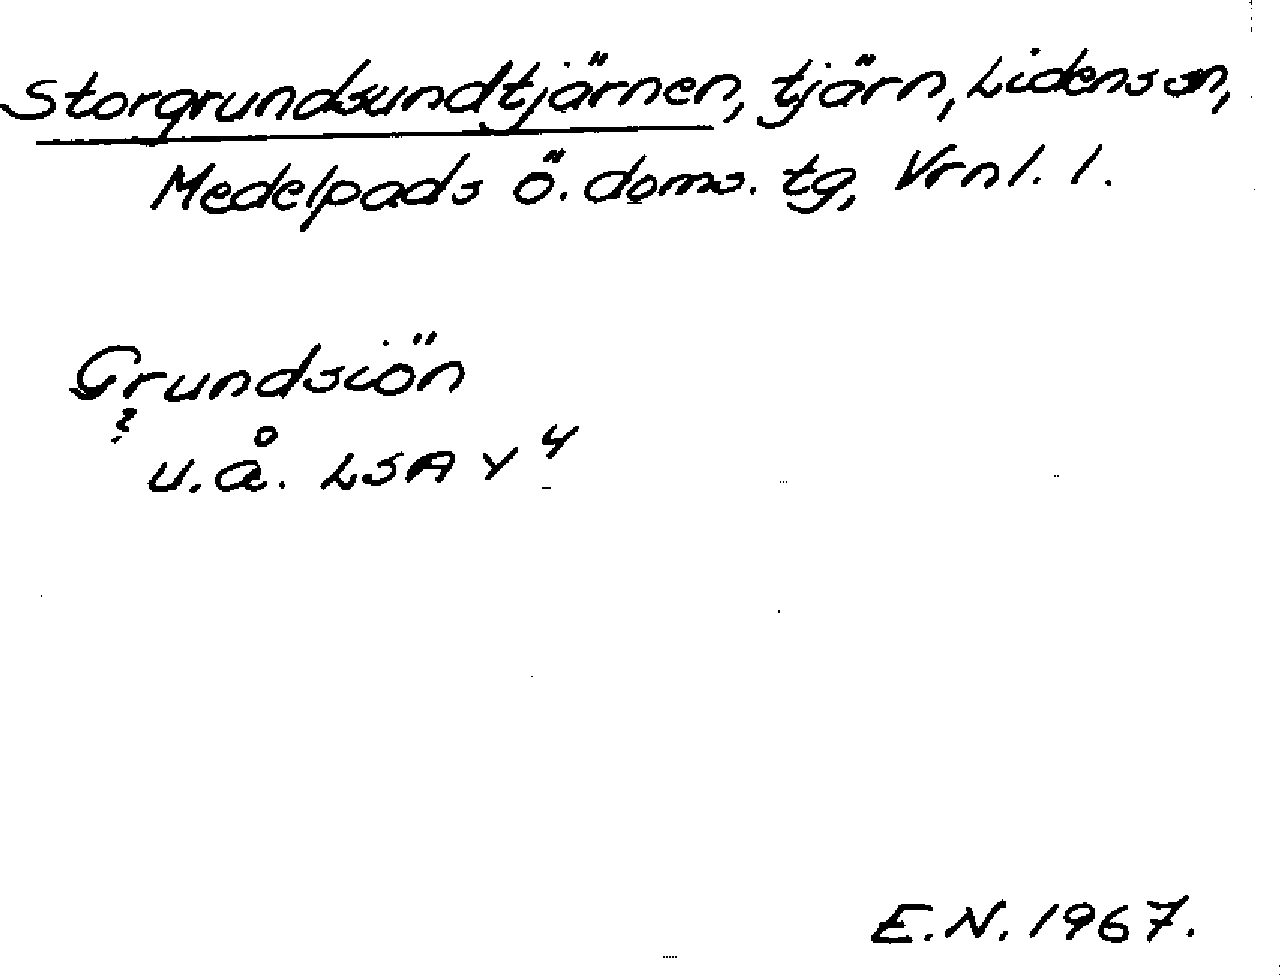 Storgrundsundtjärnen, tjärn, Lidens sn,
Medelpads ö. doms. tg, Vrnl. l.
Grundsiön
?
u.å. LSA Y 4
E.N. 1967.